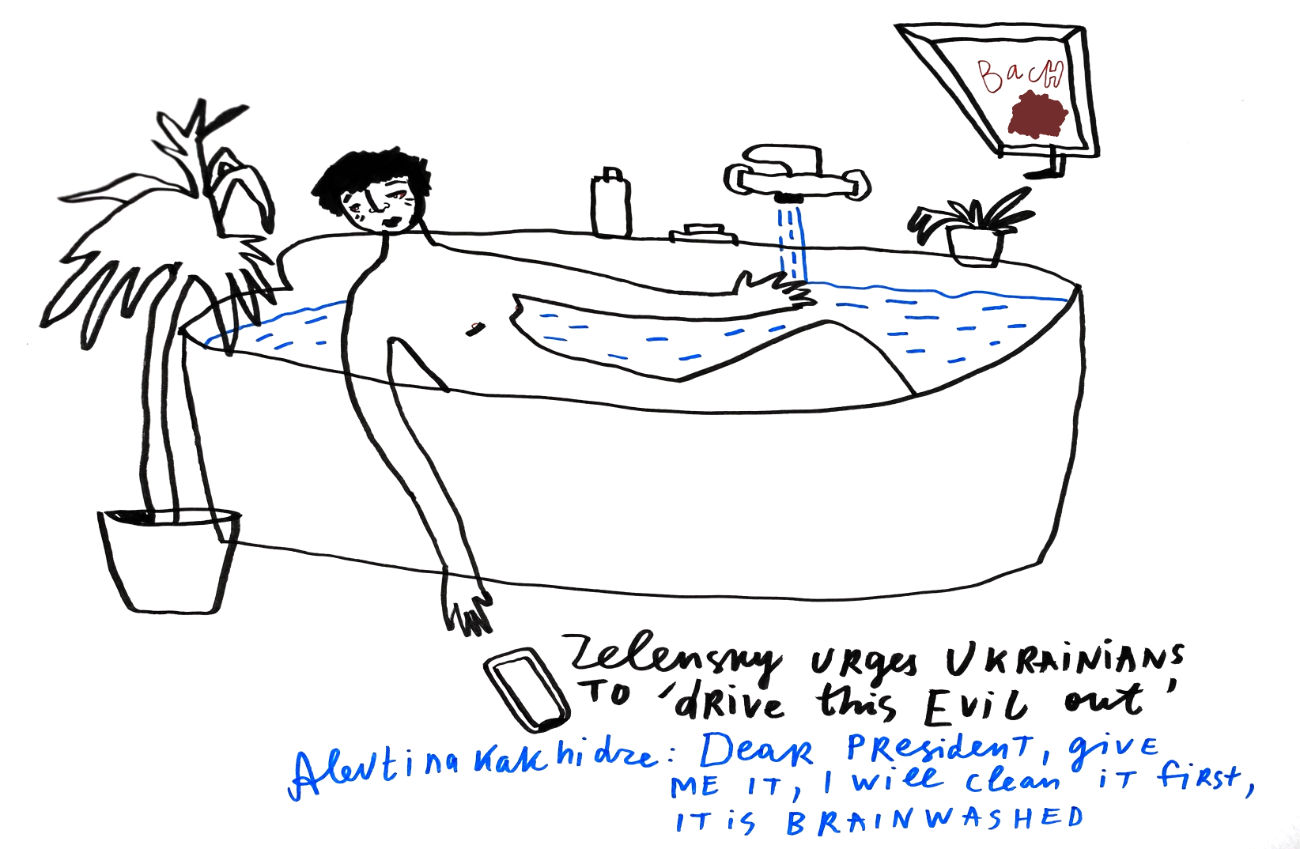 BacH
Zelensky URges UKRAiNiANs
TO 'dRive this Evil out'
Alevtina Kakhidze: Dear PResident, give
ME IT, I will clean it first,
IT is BRAINWASHED